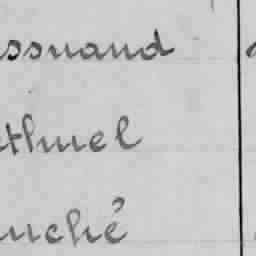 ssuand
thuel
uché